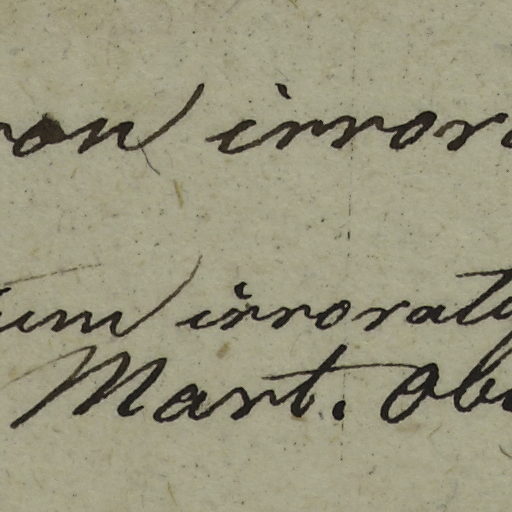 ron irror
tum irroraty
Mart. Obs